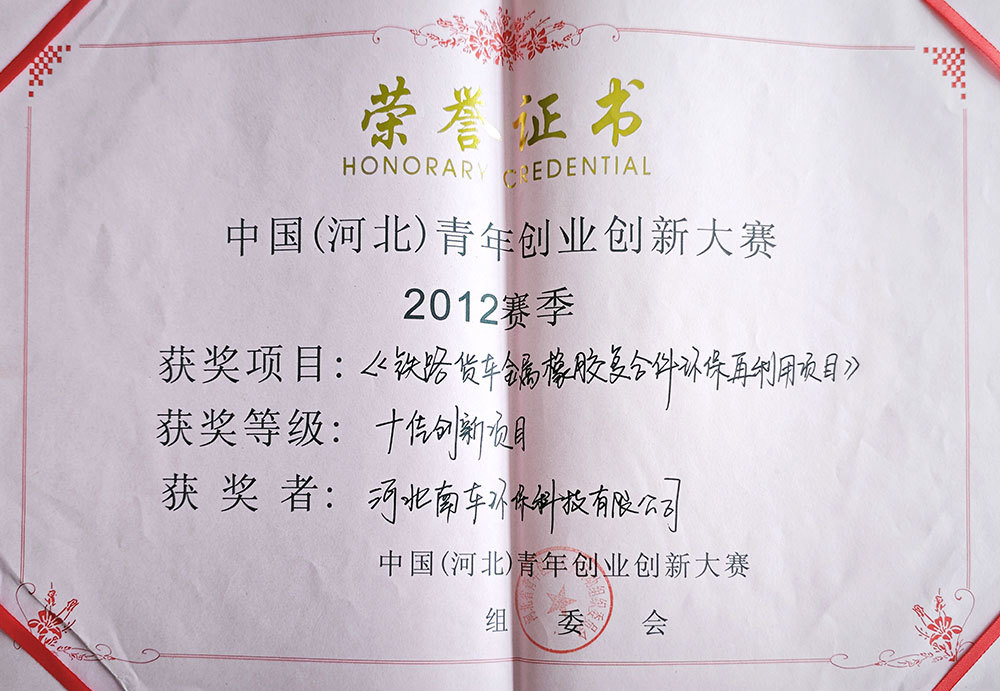 荣誉证书
HONORARY CREDENTIAL
中国(河北)青年创业创新大赛
2012赛季
获奖项目:《铁路货车金属橡胶复合件环保再利用项目》
获奖等级: 十佳创新项目
获奖者: 河北南车环保科技有限公司
中国(河北)青年创业创新大赛
组委会